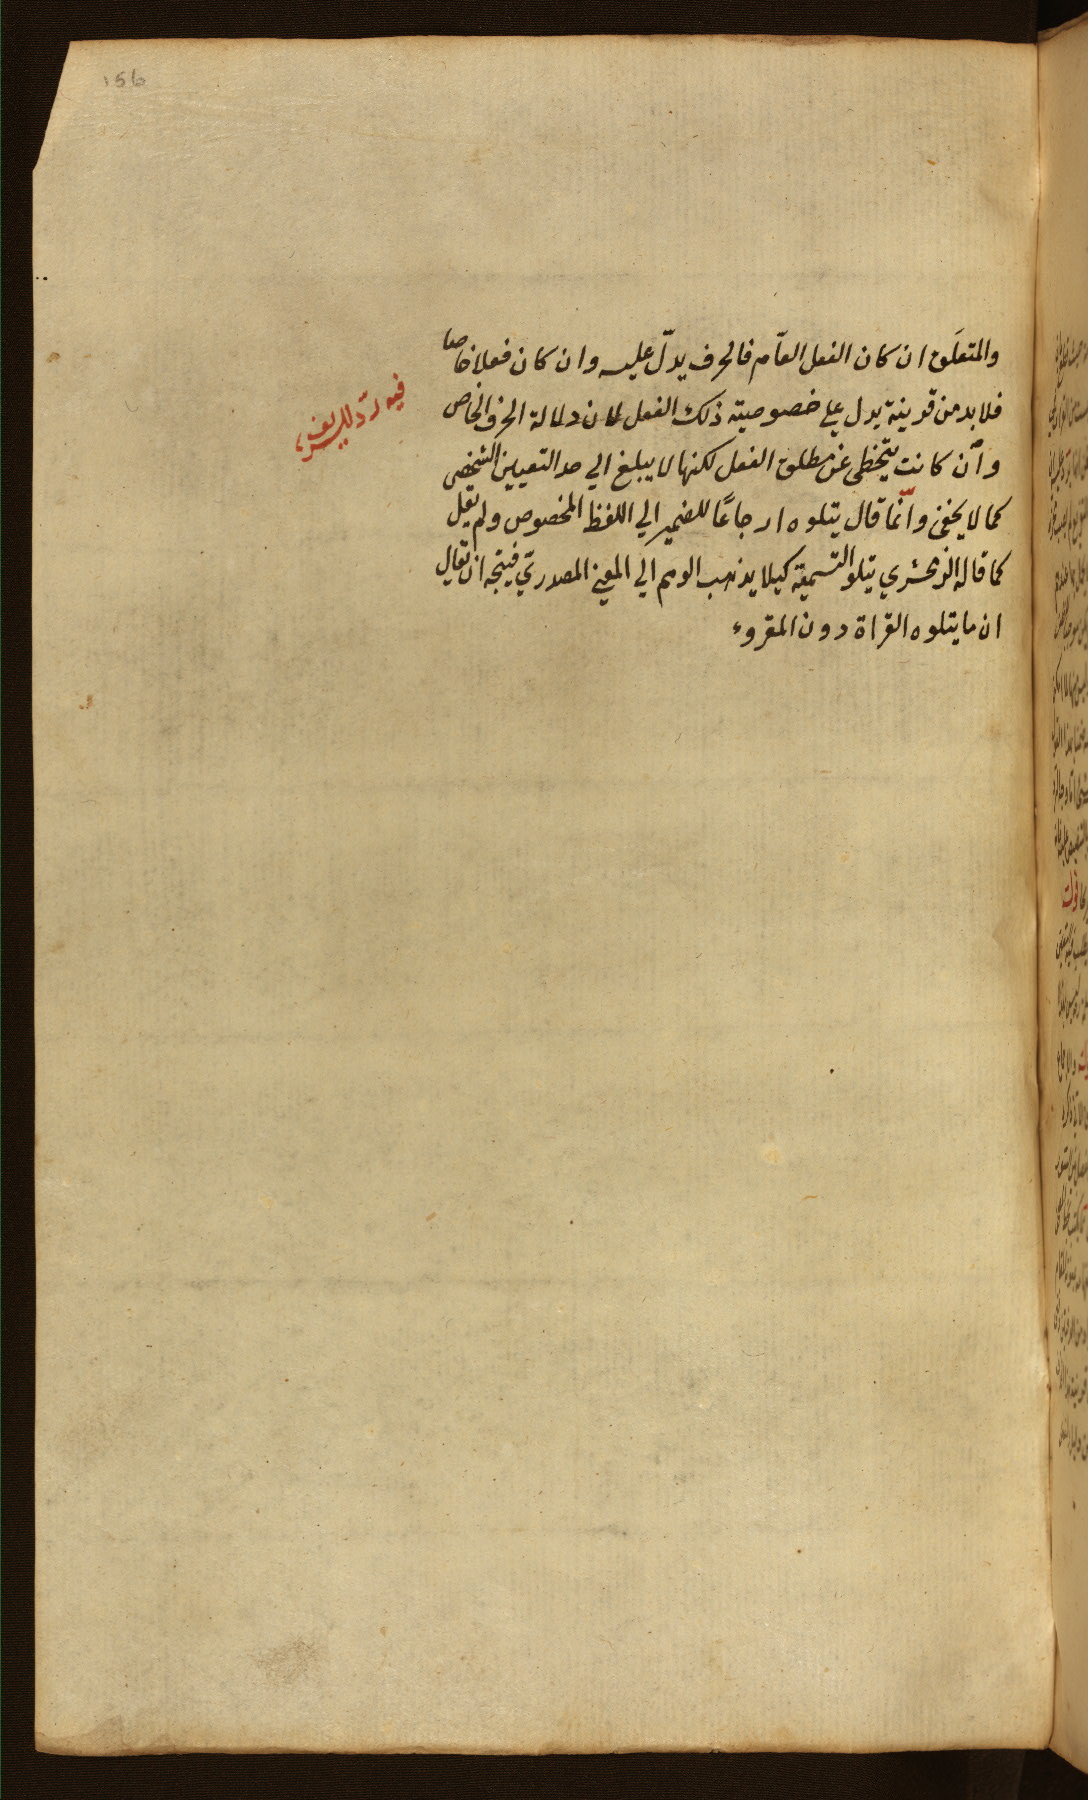 156
والمتعلَق ان كان الفعل العاّم فالحرف يدلّ عليه وان كان فعلا خاصا
فلا بد من قرينة يدل على خصوصيته ذلك الفعل لان دلالة الحرف الخاص
وان كانت يتخطى عن مطلق الفعل لكنها لا يبلغ الي حد التعيين الشخصي
كما لا يخفى وانّما قال يتلوه ارجاعًا للضمير الي اللفظ المخصوص ولم يقل
كما قاله الزمخشري يتلو التسمية كيلا يذهب الوهم الي المعنى المصدريّ فيتجه ان يقال
ان ما يتلوه القراة دون المقروء
فيه ردّ للشريف